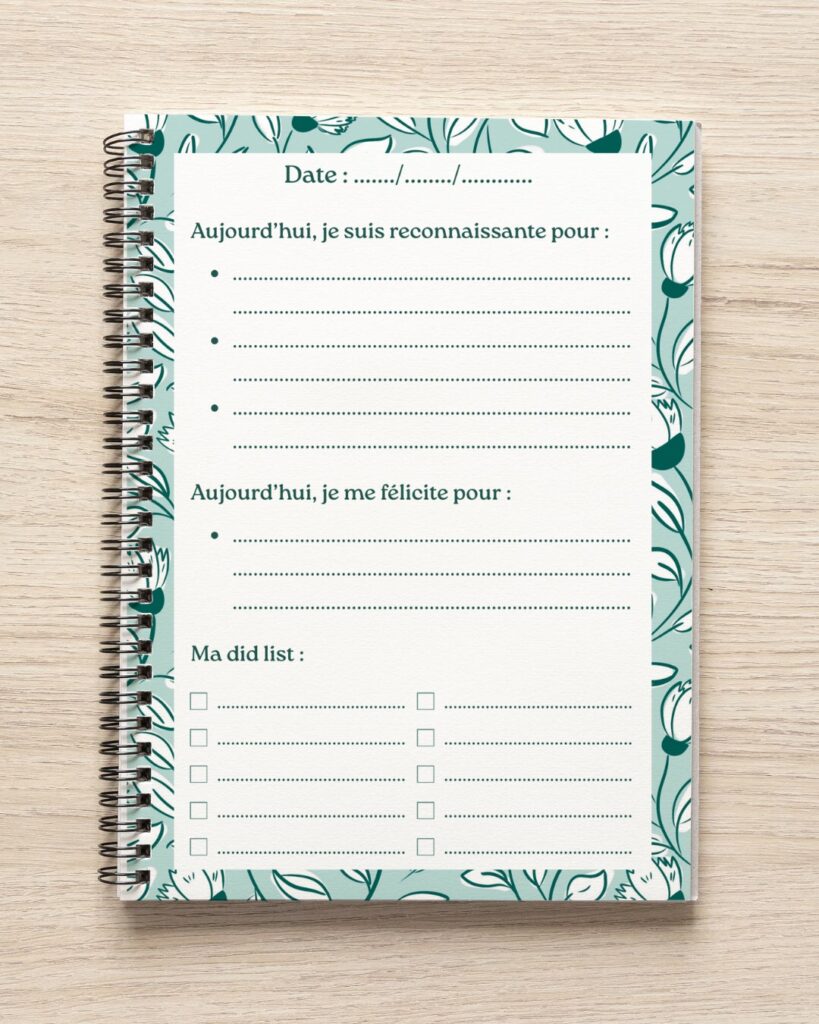 Date : ......./......../............
Aujourd'hui, je suis reconnaissante pour :
Aujourd'hui, je me félicite pour :
Ma did list :